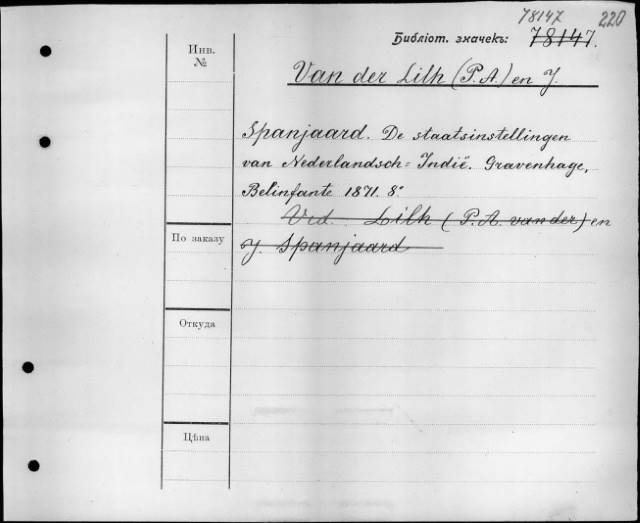 78147 220
Библіот. значекъ: 78147.
Инв.
№
Van der Lith (P.A.) en J.
Spanjaard. De staatsinstellingen
van Nederlandsch-Indië. Gravenhage,
Belinfante 1871. 8°.
Vid. Lith (P.A. van der) en
J. Spanjaard
По заказу
Откуда
Цѣна